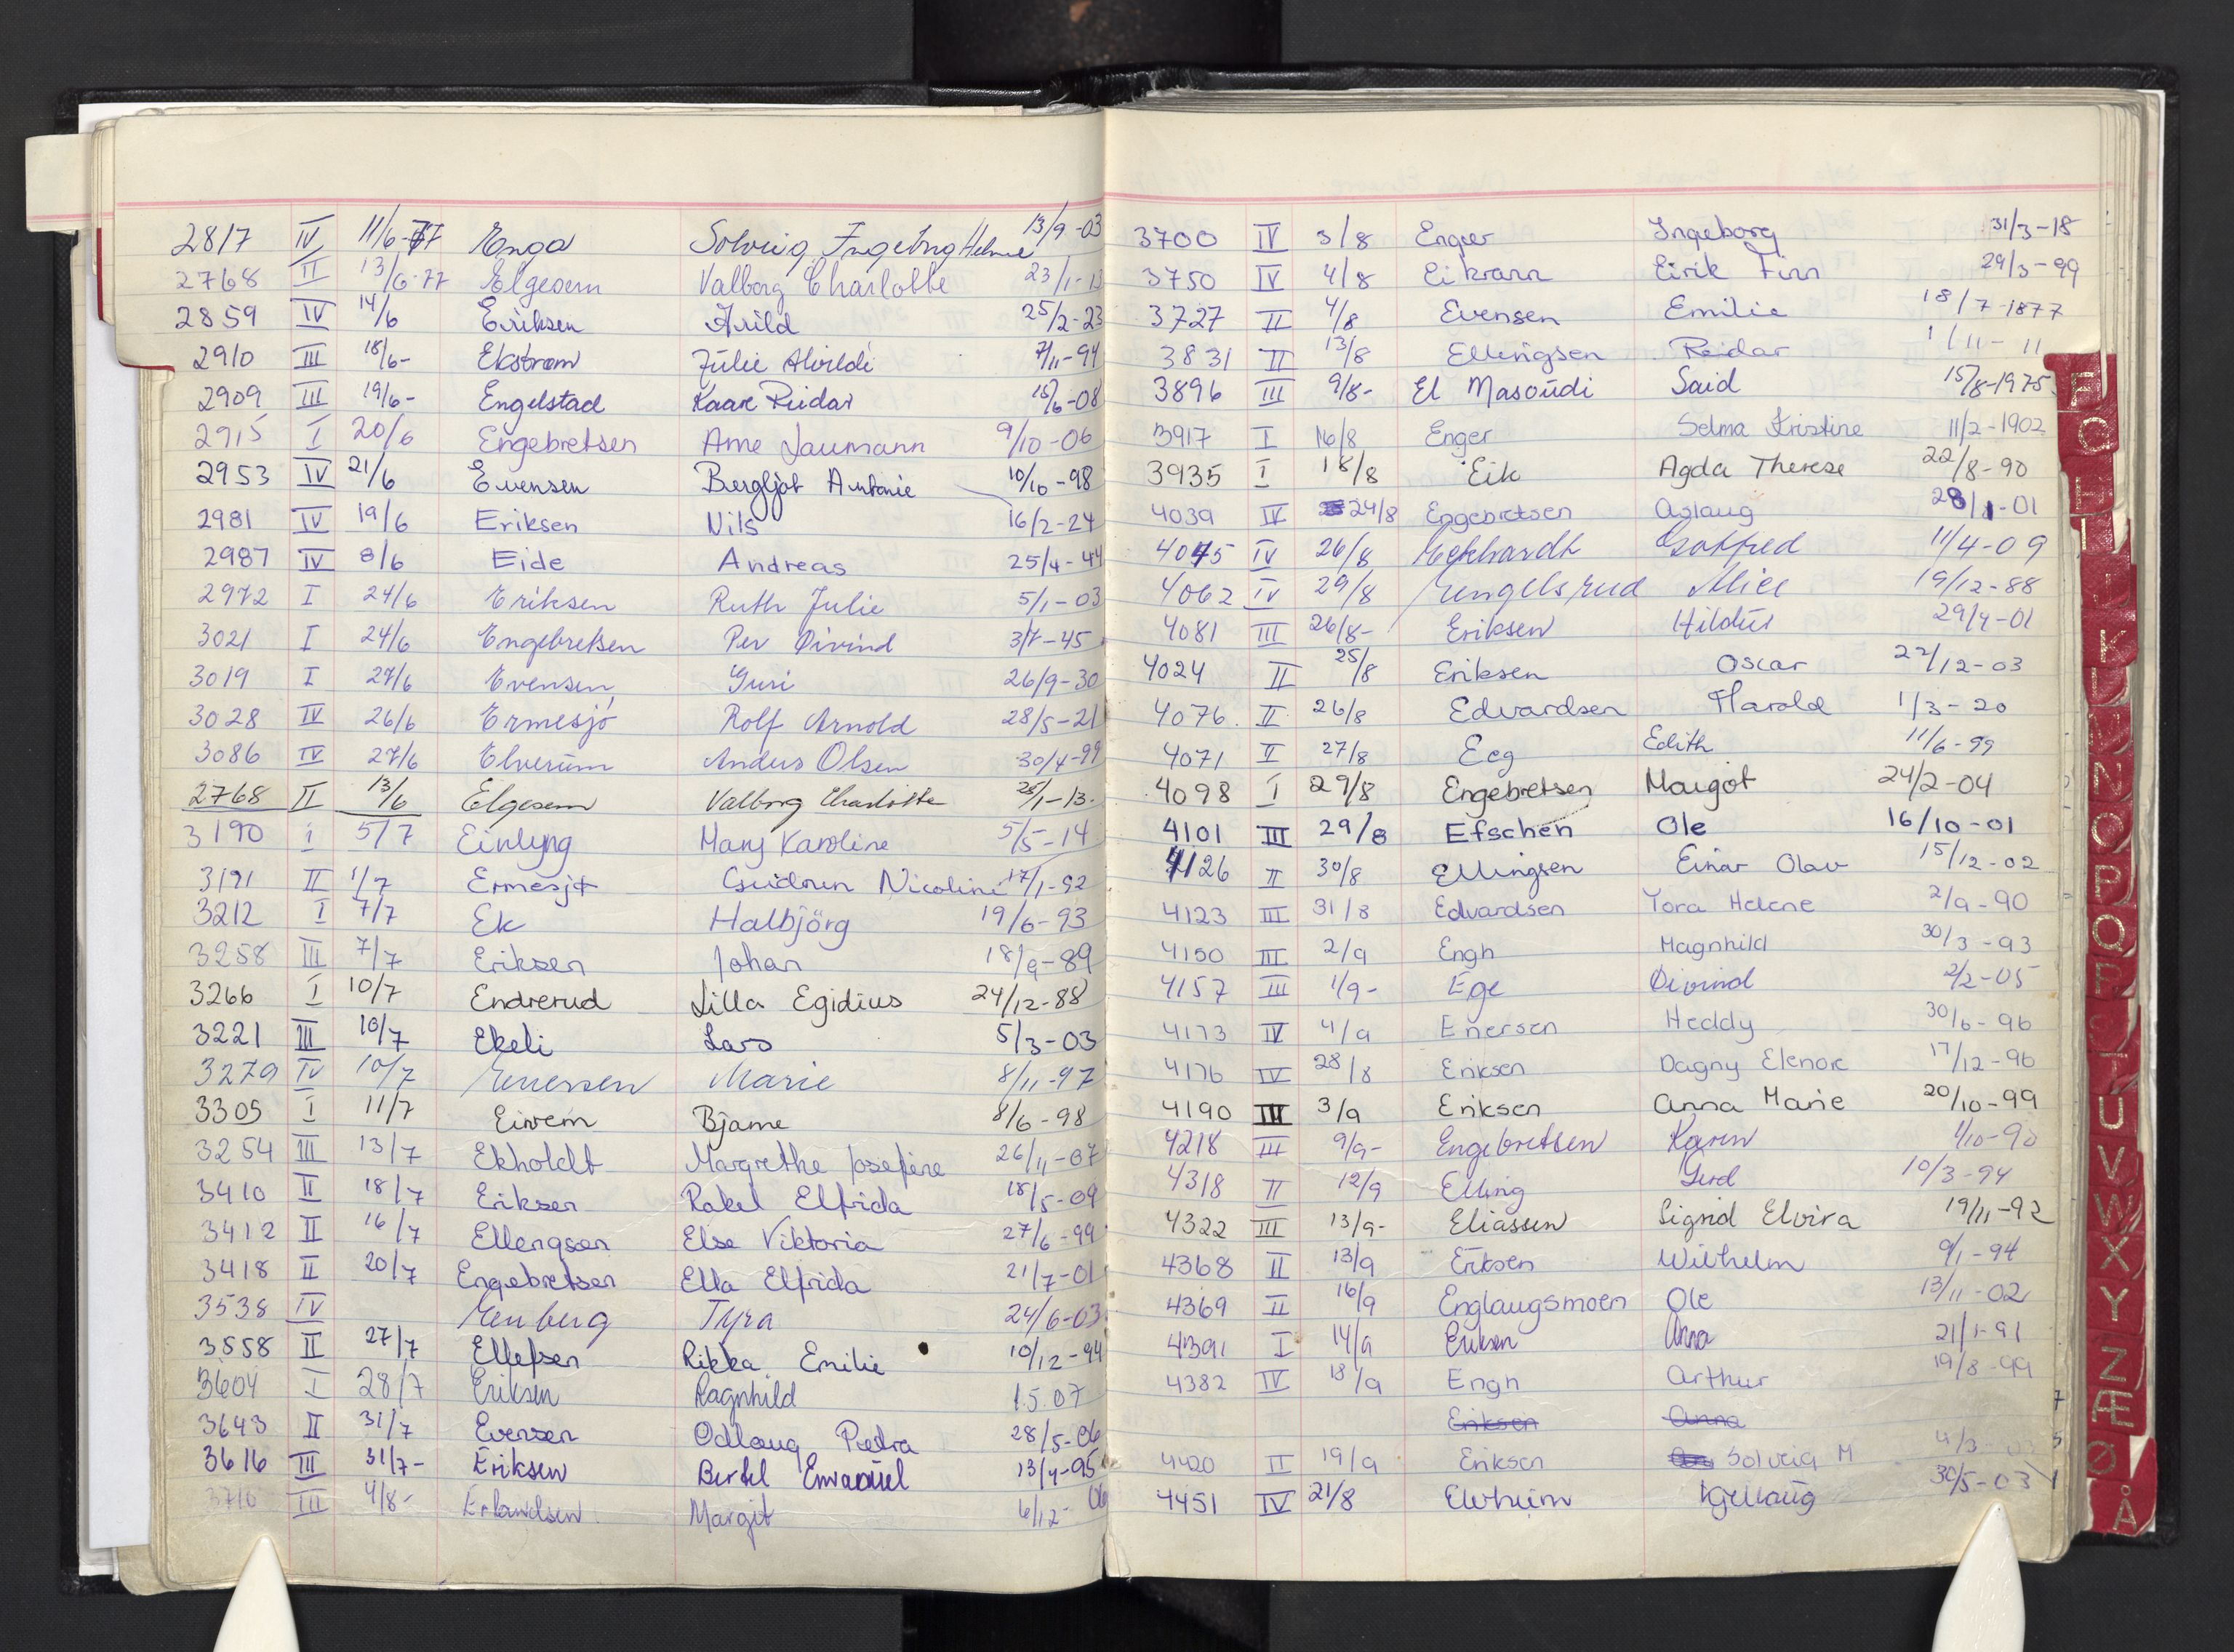 2817 IV 11/6-77 Enga Solveig Ingebrg Helene 13/9-03
2768 II 13/6-77 Elgesem Valborg Charlotte 23/1-13
2859 IV 14/6 Eriksen Arild 25/2-23
2910 III 18/6- Ekstrøm Julie Alvilde 7/11-94
2909 III 19/6- Engelstad Kaare Reidar -08
2915 I 20/6 Engebretsen Arne Laumann 9/10-06
2953 IV 21/6 Evensen Bergljot Antonie 10/10-98
2981 IV 19/6 Eriksen Nils 16/2-24
2987 IV 8/6 Eide Andreas 25/4-44
2972 I 24/6 Eriksen Ruth Julie 5/1-03
3021 I 24/6 Engebretsen Per Øivind 3/7-45
3019 I 27/6 Evensen Guri 26/9-30
3028 IV 26/6 Ermesjø Rolf Arnold 28/5-21
3086 IV 27/6 Elverum Anders Olsen 30/4-99
2768 II 13/6 Elgesem Valborg Charlotte 23/1-13.
3190 I 5/7 Einlyng Mary Karoline 5/5-14
3191 II 1/7 Ermesjø Gudrun Nicoline 17/1-92
3212 I 7/7 Ek Halbjörg 19/6-93
3258 III 7/7 Eriksen Johan 18/9-89
3266 I 10/7 Endrerud Lilla Egidius 24/12-88
3221 III 10/7 Ekeli Lars 5/3-03
3279 IV 10/7 Enersen Marie 8/11-97
3305 I 11/7 Eivem Bjarne 8/6-98
3254 III 13/7 Ekholdt Margrethe Josefine 26/11-07
3410 II 18/7 Eriksen Rakel Elfrida 18/5-09
3412 II 16/7 Ellengsen Else Viktoria 27/6-99
3418 II 20/7 Engebretsen Ella Elfrida 21/7-01
3538 IV Enberg Tyra 24/6-03
3558 II 27/7 Ellefsen Rikka Emilie 10/12-94
3604 I 28/7 Eriksen Ragnhild 1.5.07
3643 II 31/7 Evensen Odlaug Petra 28/5-06
3616 III 31/7- Eriksen Bertel Emanuel 13/4-95
3710 III 4/8- Erlandsen Margit 6/12-06
3700 IV 3/8 Enger Ingeborg 31/3-18
3750 IV 4/8 Eikrann Eirik Finn 29/3-99
3727 II 4/8 Evensen Emilie 18/7-1877
3831 II 13/8 Ellingsen Reidar 1/11-11
3896 III 9/8- El Masoudi Said 15/8-1975.
3917 I 16/8 Enger Selma Kristine 11/2-1902
3935 I 18/8 Eik Agda Therese 22/8-90
4039 IV 24/8 Engebretsen Aslaug 28/1-01
4045 IV 26/8 Eckhardt Gotfred 11/4-09
4062 IV 29/8 Engelsrud Alice 19/12-88
4081 III 26/8- Eriksen Hildur 29/4-01
4024 II 25/8 Eriksen Oscar 27/12-03
4076. II 26/8 Edvardsen Harold 1/3-20
4071 II 27/8 Eeg Edith 11/6-99
4098 I 29/8 Engebretsen Margot 24/2-04
4101 III 29/8 Efschen Ole 16/10-01
4126 II 30/8 Ellingsen Einar Olav 15/12-02
4123 III 31/8 Edvardsen Tora Helene 2/9-90
4150 III 2/9 Engh Magnhild 30/3-93
4157 III 1/9- Ege Øivind 2/2-05
4173 IV 4/9 Enersen Heddy 30/6-96
4176 IV 28/8 Eriksen Dagny Elenore 17/12-96
4190 III 3/9 Eriksen Anna Marie 20/10-99
4218 III 9/9- Engebretsen Karen 1/10-90
4318 II 12/9 Elling Gerd 10/3-94
4322 III 13/9- Eliassen Sigrid Elvira 19/11-92
4368 II 13/9 Eriksen Wilhelm 9/1-94
4369 II 16/9 Englaugsmoen Ole 13/11-02
4391 I 14/9 Eriksen Anna 21/1-91
4382 IV 18/9 Engh Arthur 19/8-99
Eriksen Anna
4420 II 19/9 Eriksen Solveig M 4/3-
4451 IV 21/8 Elvheim Kjellaug 30/5-03
F
G
H
I
J
K
L
M
N
O
P
Q
R
S
T
U
V
W
X
Y
Z
Æ
Ø
Å